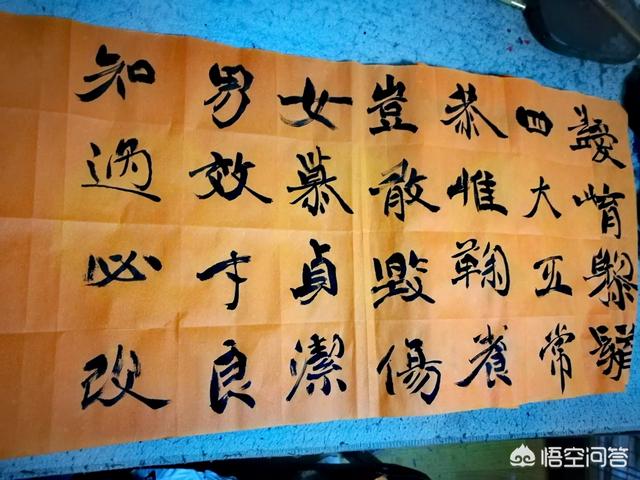 目大五常
恭惟鞠養
豈敢毀傷
女慕貞潔
男效才良
知過必改
悟空问答